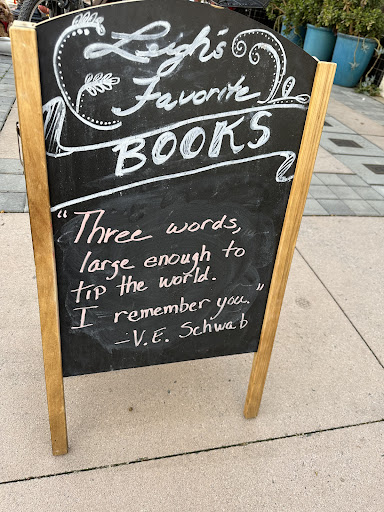 Leigh's
Favorite
BOOKS
"Three words,
large enough to
tip the world.
I remember you."
-V.E. Schwab